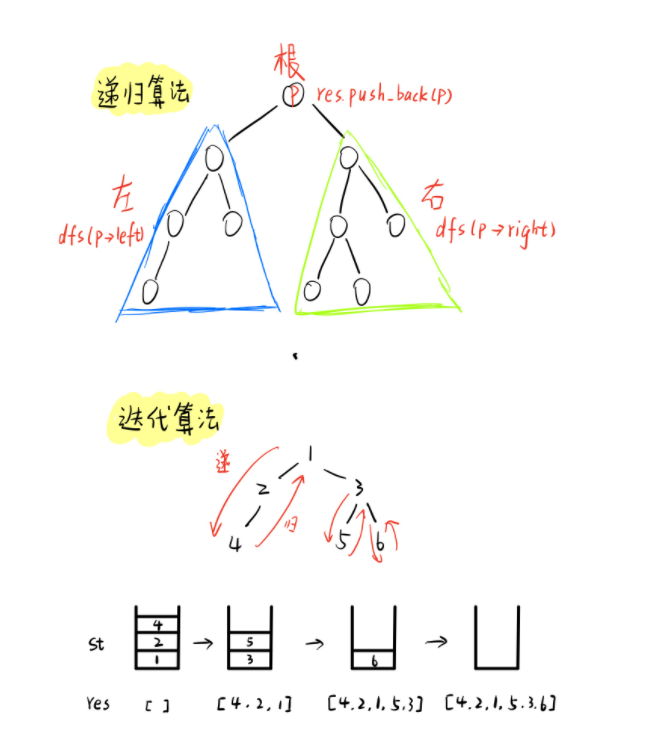 根
递归算法
P res.push_back(p)
左
右
dfs(p→left)
dfs(p→right)
迭代算法
递
1
2
3
归
4
5
6
st
4
2
1
5
3
6
res
[ ]
[4.2,1]
[4.2,1,5,3]
[4.2,1,5.3.6]